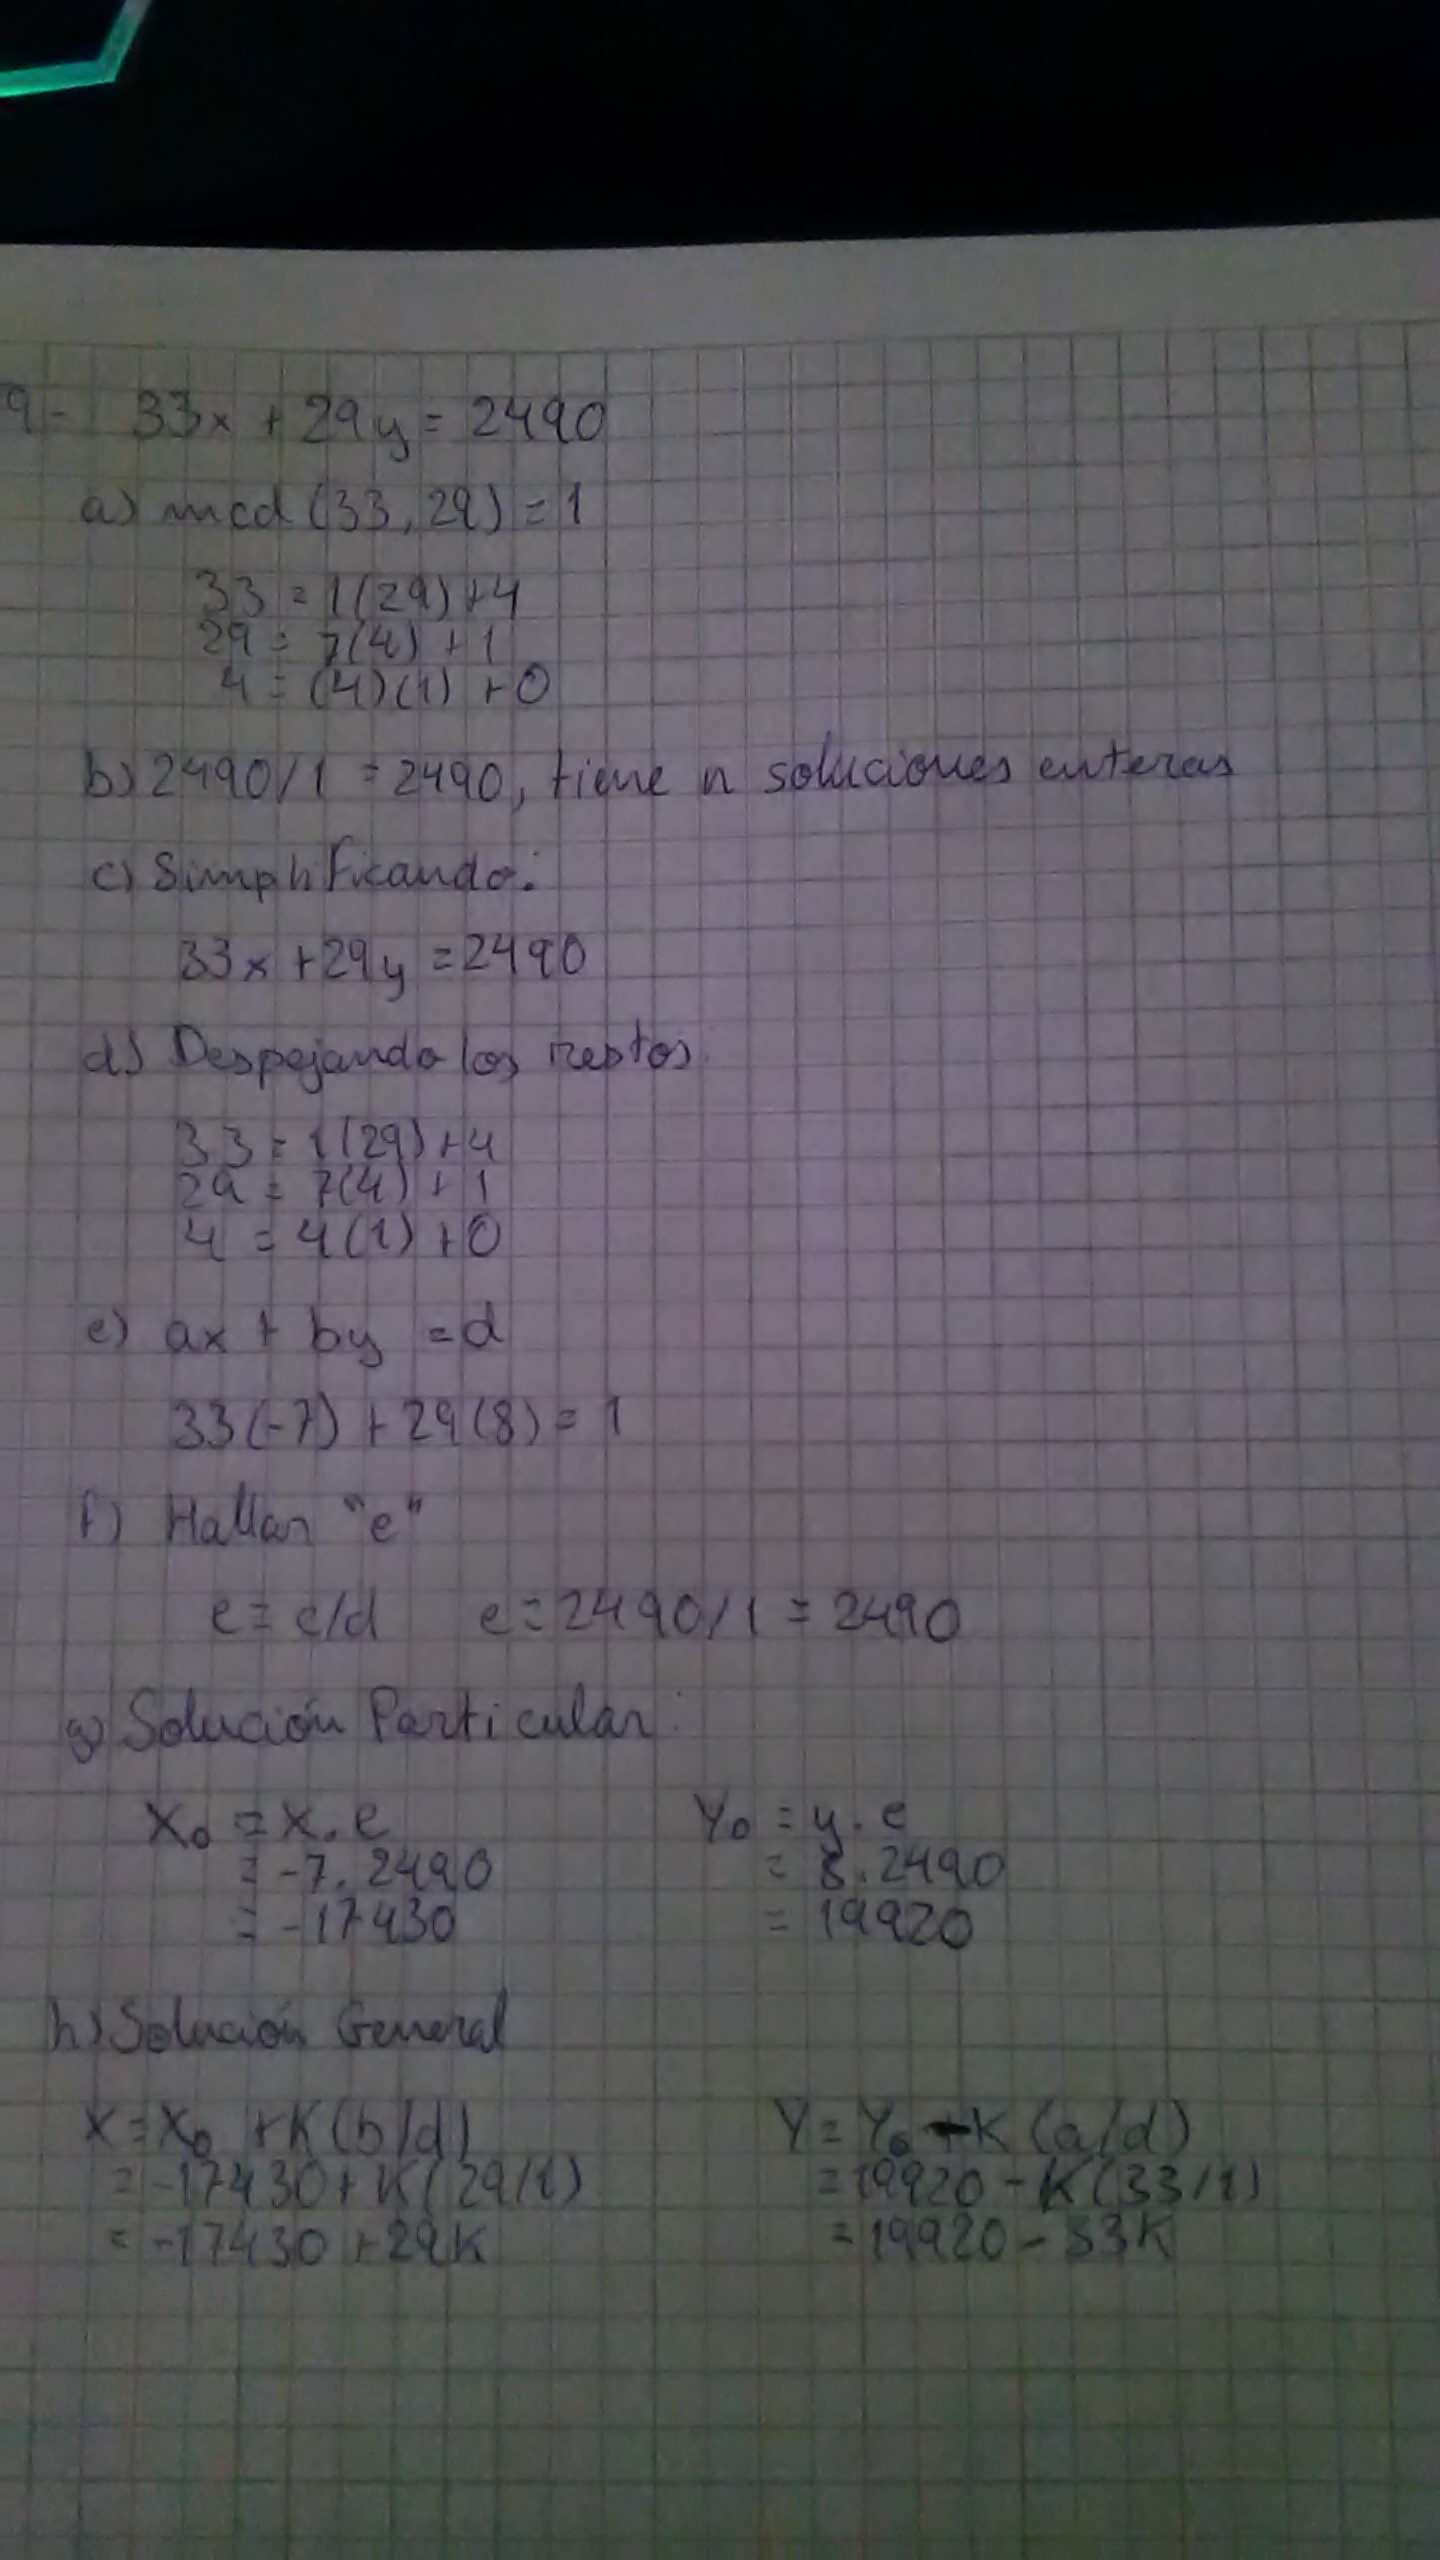 9- 33x + 29y = 2490
a) mcd (33, 29) = 1
33 = 1(29) + 4
29 = 7(4) + 1
4 = (4)(1) + 0
b) 2490/1 = 2490, tiene n soluciones enteras
c) Simplificando:
33x + 29y = 2490
d) Despejando los restos
33 = 1(29) + 4
29 = 7(4) + 1
4 = 4(1) + 0
e) ax + by = d
33(-7) + 29(8) = 1
f) Hallar "e"
e = c/d e = 2490/1 = 2490
g) Solución Particular:
X₀ = x.e Y₀ = y.e
= -7.2490 = 8.2490
= -17430 = 19920
h) Solución General
X = X₀ + K(b/d) Y = Y₀ - K(a/d)
= -17430 + K(29/1) = 19920 - K(33/1)
= -17430 + 29K = 19920 - 33K